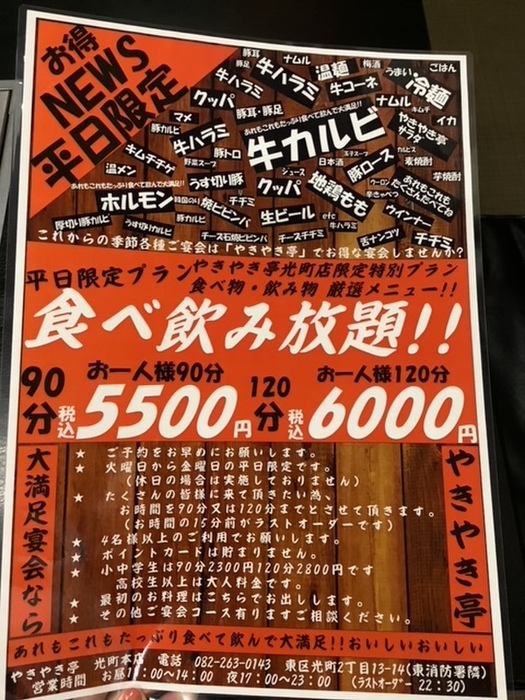 お得
NEWS
平日限定
豚耳
豚足
ナムル
梅酒
うまい
ごはん
牛ハラミ
牛ハラミ
温麺
牛コーネ
冷麺
クッパ
豚耳・豚足
ナムル
キムチ
イカ
マメ
豚カルビ
牛ハラミ
あれもこれもたっぷり食べて飲んで大満足!!
牛カルビ
やきやき亭
サラダ
カルピス
麦焼酎
キムチチゲ
野菜スープ
豚トロ
玉子スープ
日本酒
豚ロース
芋焼酎
温メン
あれもこれもたっぷり食べて飲んで大満足!!
うす切り豚
ジュース
クッパ
地鶏もも
ウーロン
辛きゃべつ
あれもこれも
たくさんたべてね
ホルモン
韓国のり
チヂミ
焼ビビンバ
生ビール
etc
ウインナー
厚切り豚カルビ
うす切カルビ
チーズ石焼ビビンバ
チーズチヂミ
牛ハラミ
舌ナンコツ
チヂミ
これからの季節各種ご宴会は「やきやき亭」でお得な宴会しませんか?
平日限定プラン
やきやき亭光町店限定特別プラン
食べ物・飲み物 厳選メニュー!!
食べ飲み放題!!
90分
お一人様90分
税込5500円
120分
お一人様120分
税込6000円
大満足宴会なら
★ ご予約をお早めにお願いします。
★ 火曜日から金曜日の平日限定です。
(休日の場合は実施しておりません)
★ たくさんの皆様に来て頂きたい為、
お時間を90分又は120分までとさせて頂きます。
(お時間の15分前がラストオーダーです)
★ 4名様以上のご利用でお願いします。
★ ポイントカードは貯まりません。
★ 小中学生は90分2300円120分2800円です
高校生以上は大人料金です。
★ 最初のお料理はこちらでお出しします。
★ その他ご宴会コース有りますご相談ください。
やきやき亭
あれもこれもたっぷり食べて飲んで大満足!!おいしいおいしい
やきやき亭 光町本店 電話 082-263-0143 東区光町2丁目13-14(東消防署隣)
営業時間 お昼11:00~14:00 夜17:00~23:00 (ラストオーダー22:30)